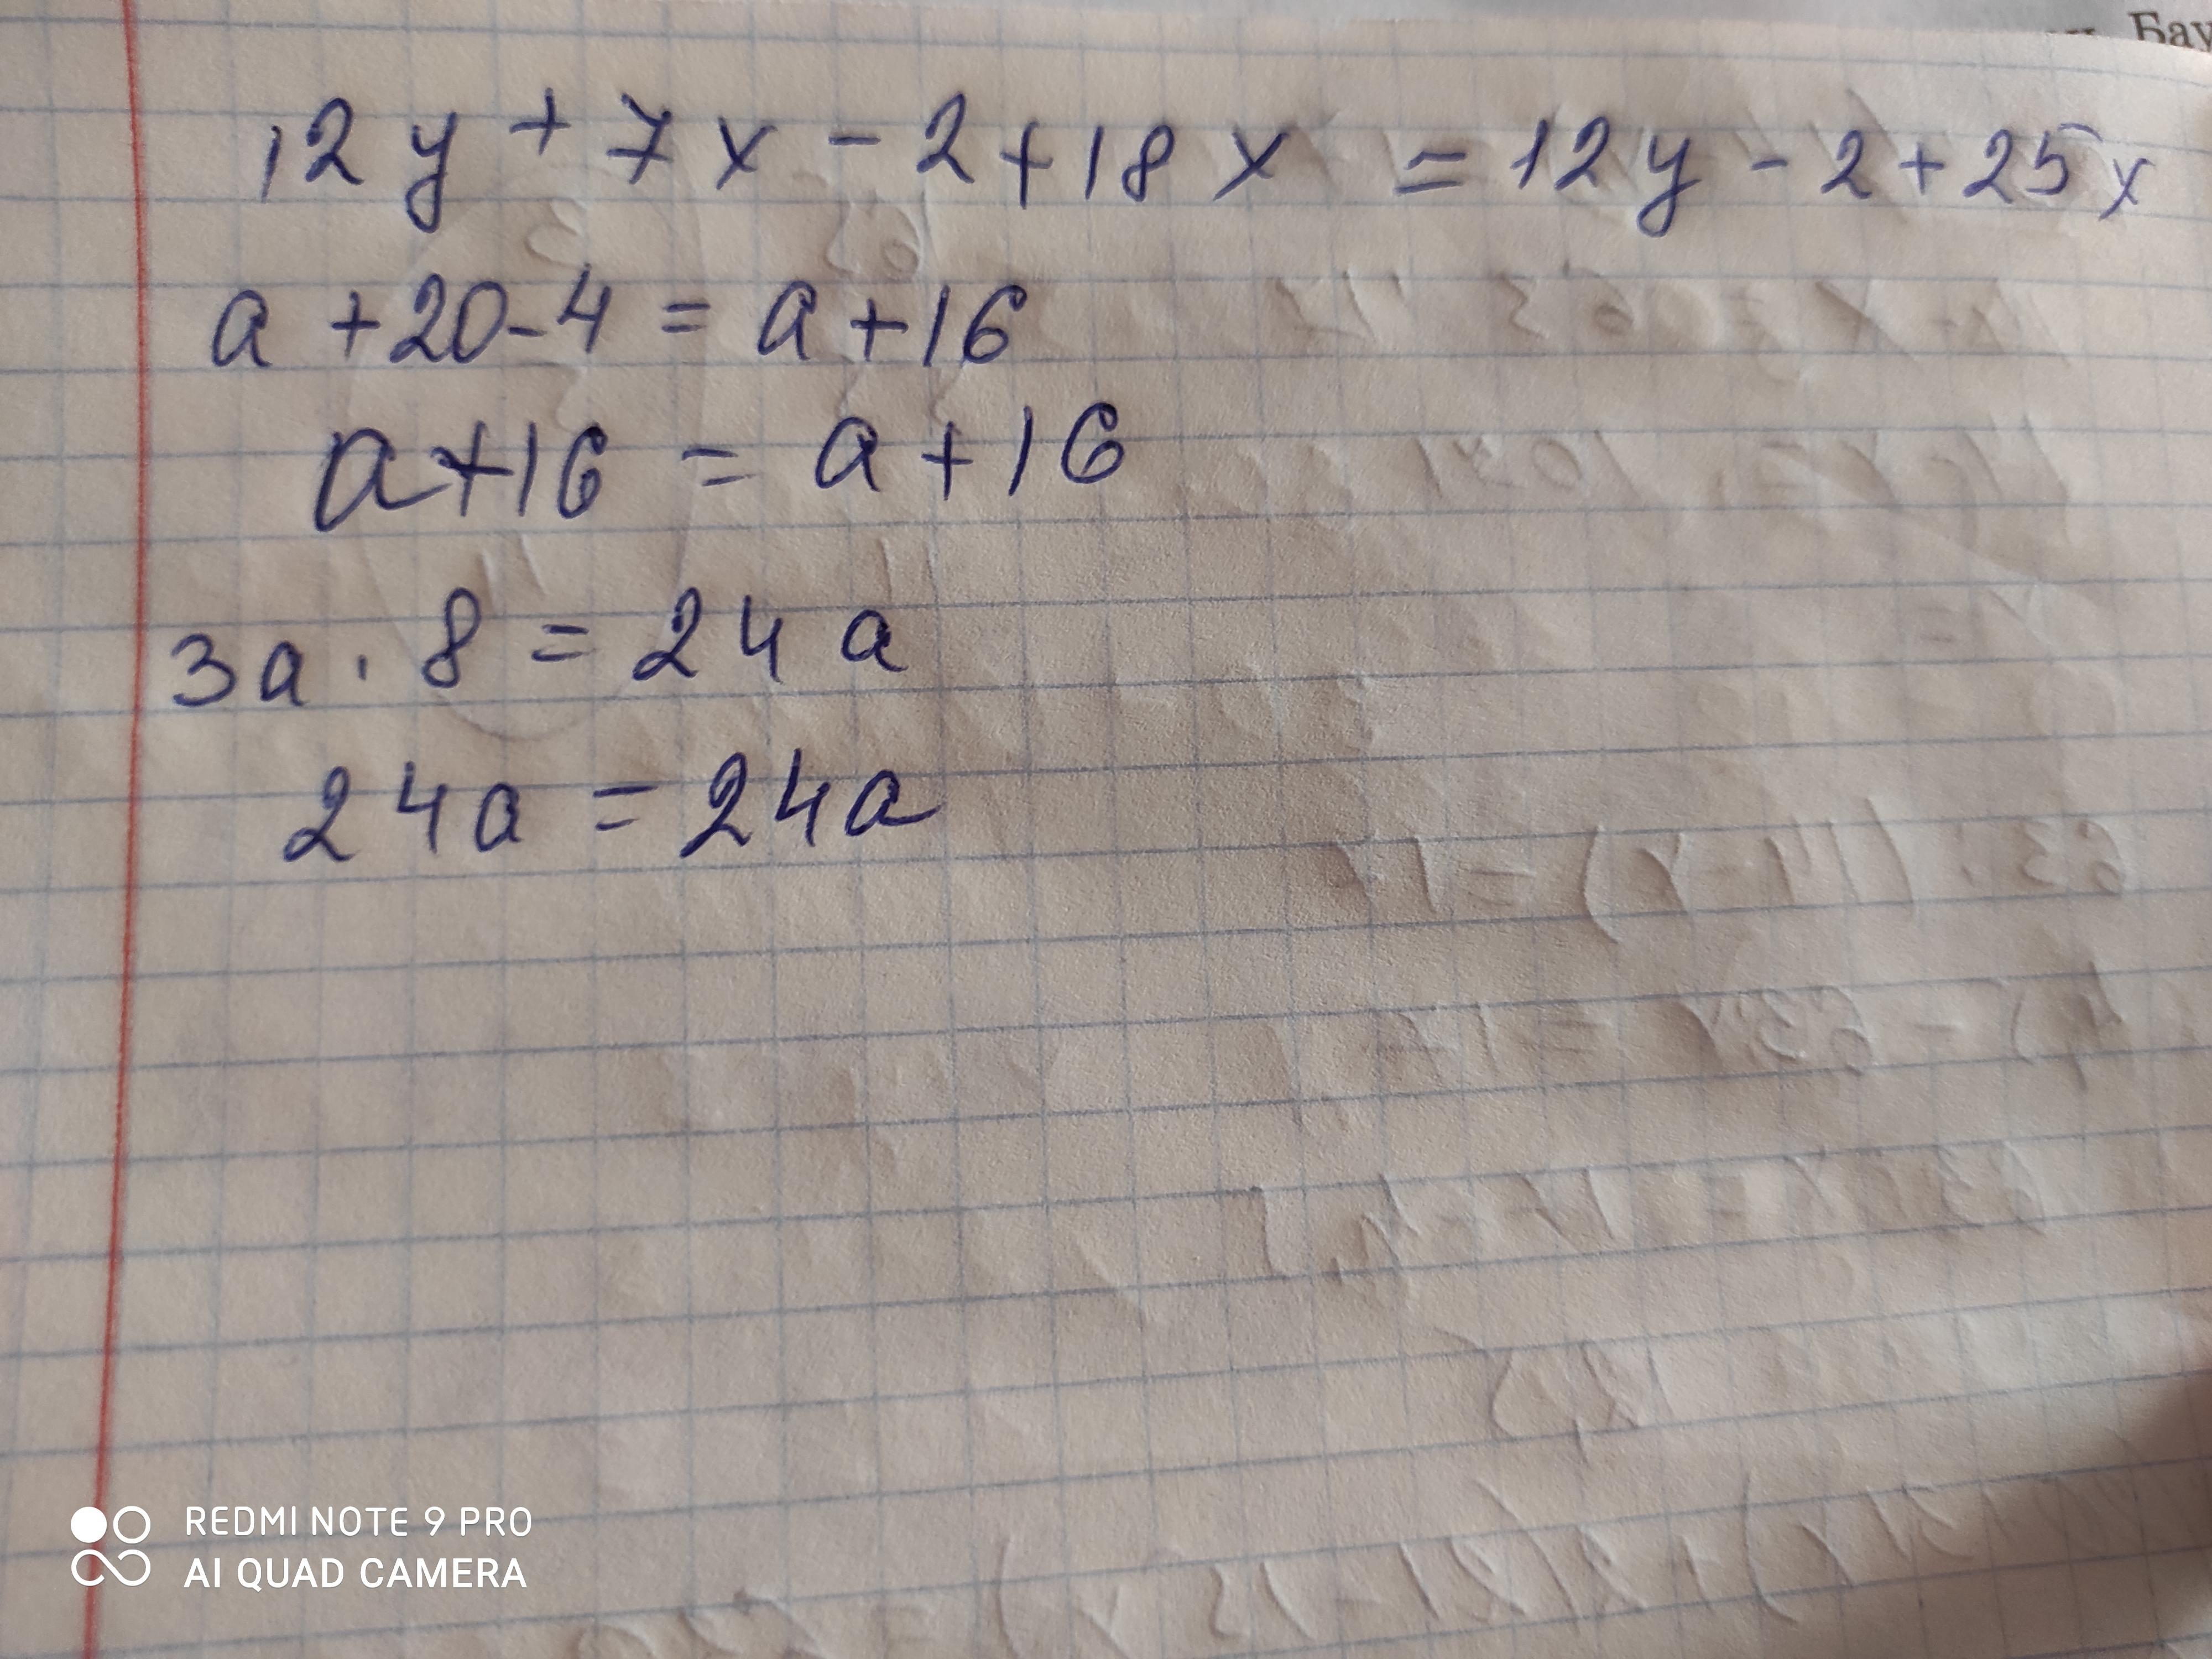 Бау
12y + 7x - 2 + 18x = 12y - 2 + 25x
a + 20 - 4 = a + 16
a + 16 = a + 16
3a · 8 = 24a
24a = 24a
REDMI NOTE 9 PRO
AI QUAD CAMERA